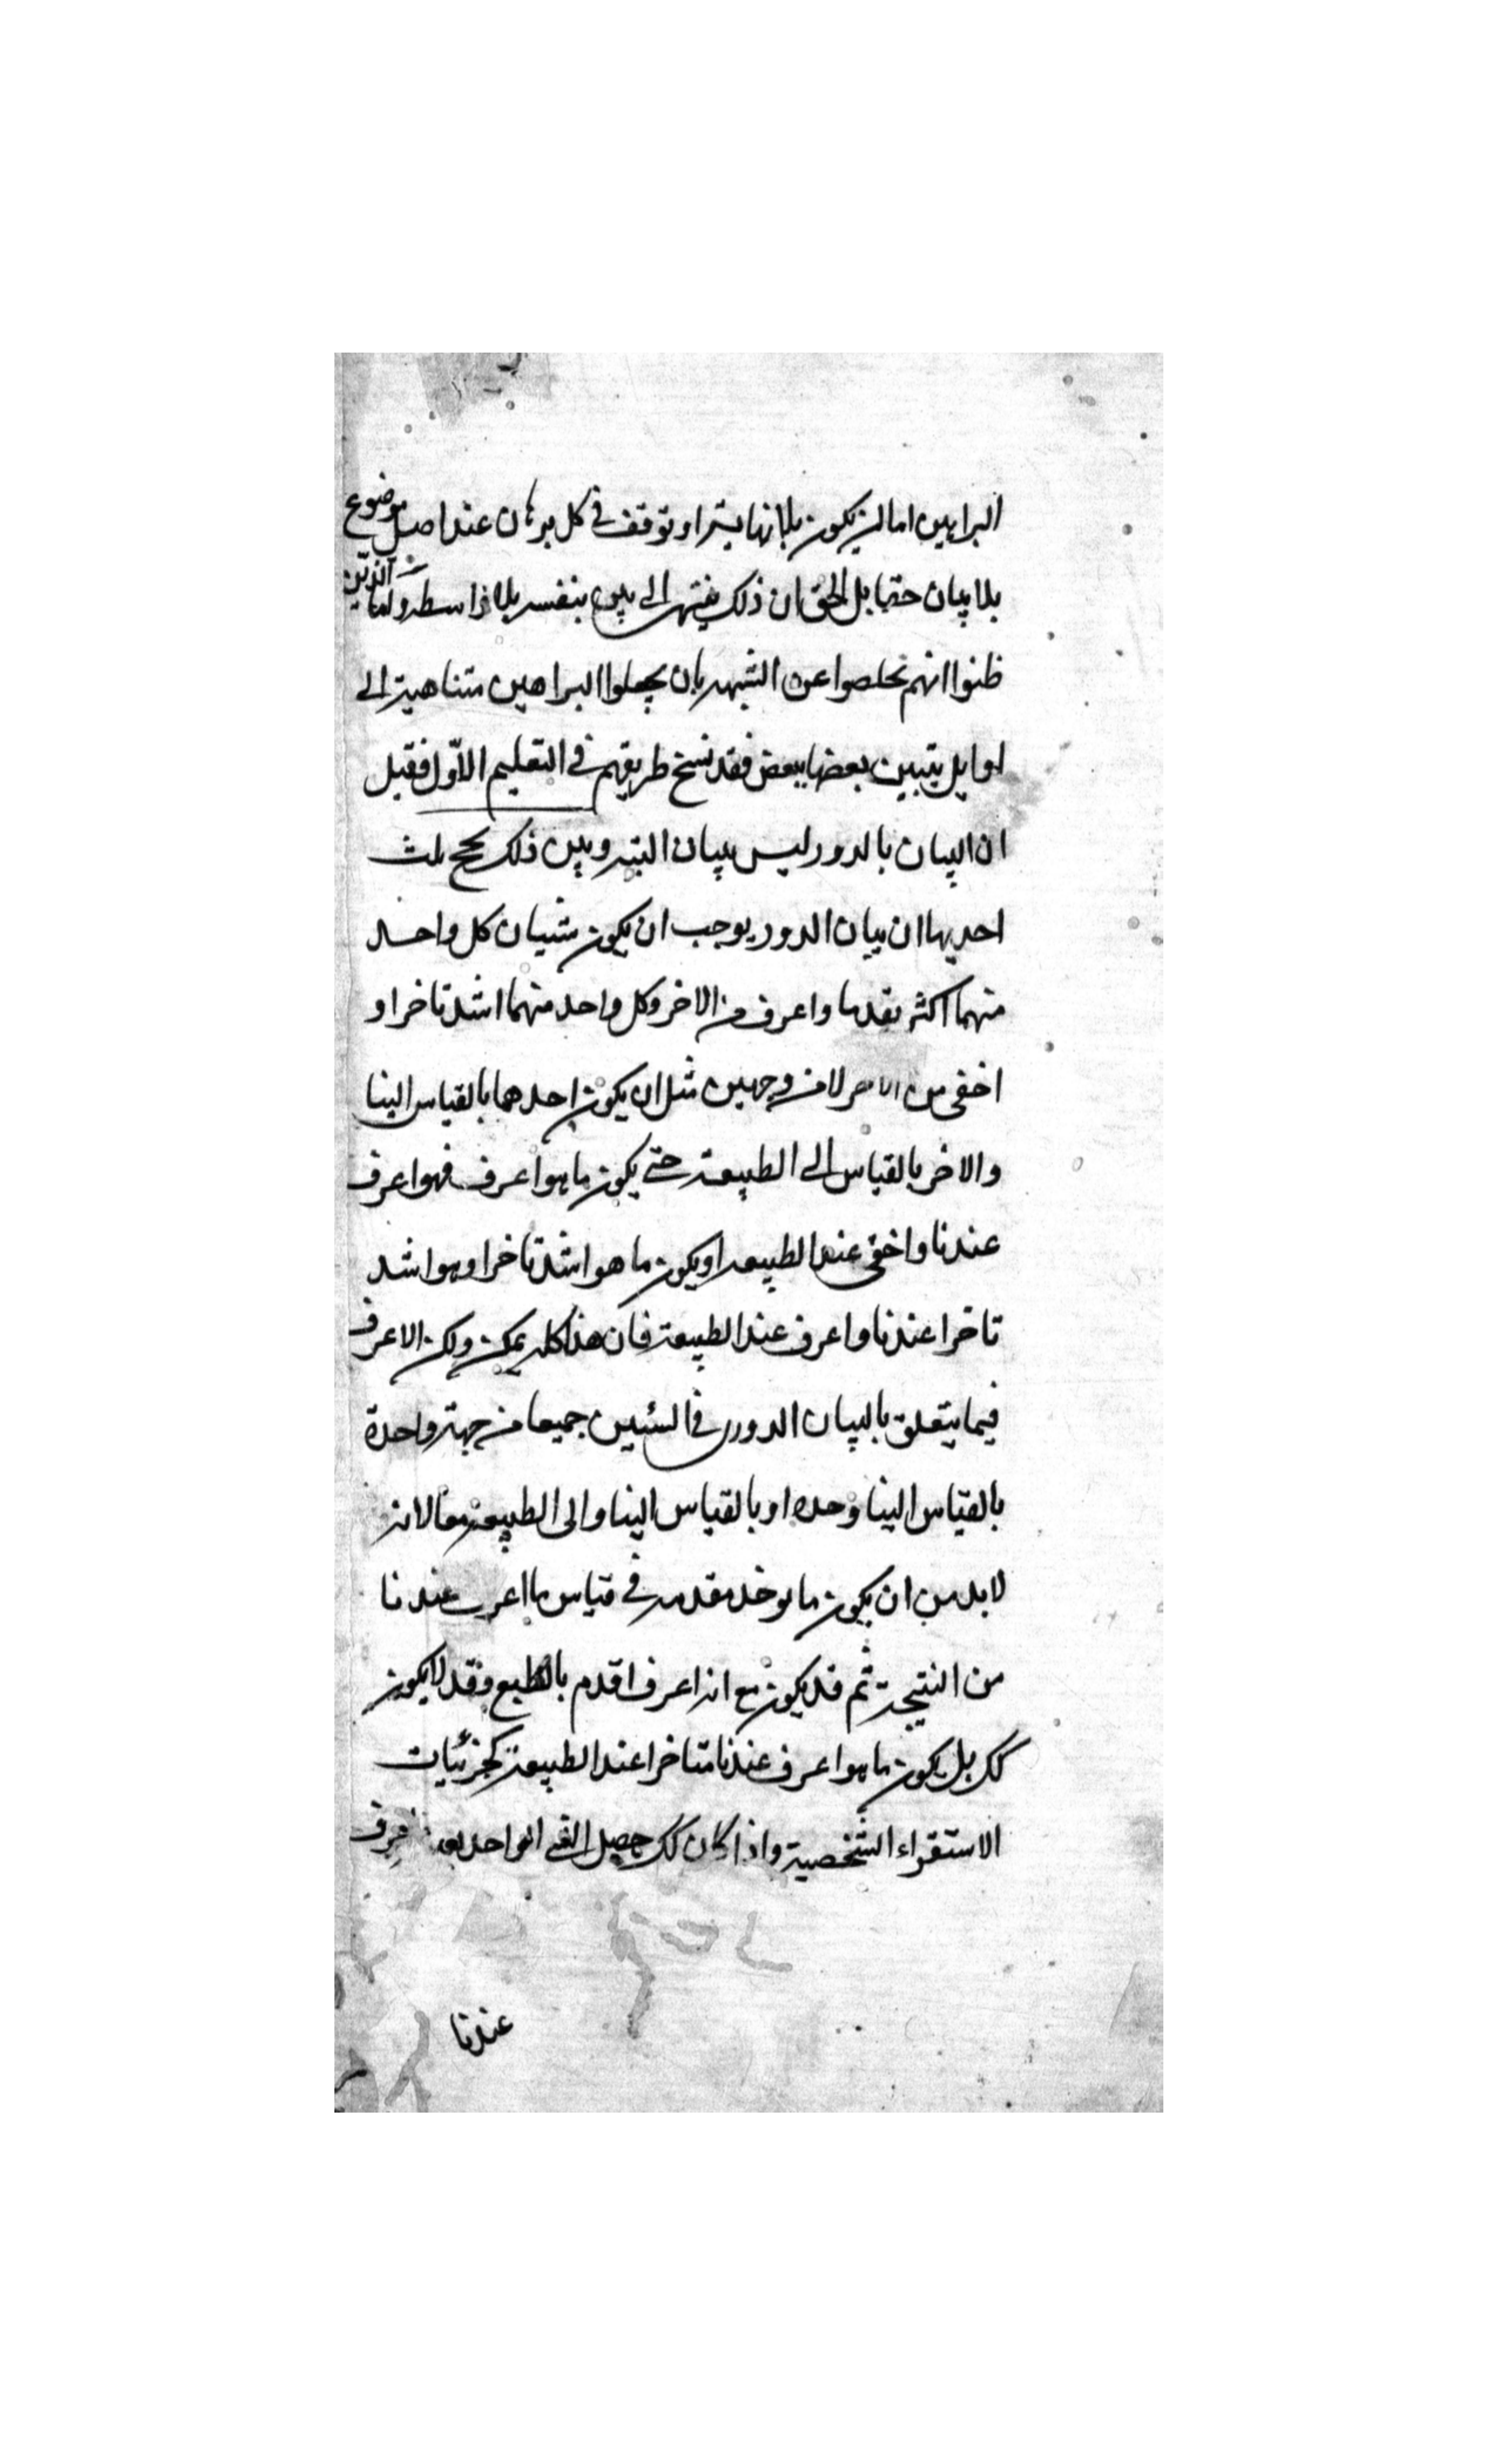 البراهين اما ان يكون بلا نهاية او توقف في كل برهان عند اصل موضوع
بلا بيان حقا بل الحق ان ذلك ينتهى الى بين بنفسه بلا واسطة واما الذين
ظنوا انهم تخلصوا عن الشبهه بان يجعلوا البراهين متناهية الى
اوايل يتبين بعضها ببعض فقد نسخ طريقهم في التعليم الاوّل فقيل
ان البيان بالدور ليس ببيان البته وبين ذلك بحجج ثلث
احديها ان بيان الدور يوجب ان يكون شيان كل واحد
منهما اكثر تقدما واعرف من الاخر وكل واحد منهما اشد تاخرا و
اخفى من الاخر لا من وجهين مثل ان يكون احدهما بالقياس الينا
والاخر بالقياس الى الطبيعة حتى يكون ما هو اعرف فهو اعرف
عندنا واخفى عند الطبيعه او يكون ما هو اشد تاخرا وهو اشد
تاخرا عندنا واعرف عند الطبيعة فان هذا كله يمكن ولكن الاعرف
فيما يتعلق بالبيان الدورى في الشيئين جميعا من جهة واحدة
بالقياس الينا وحده او بالقياس الينا والى الطبيعة معا لانه
لابد من ان يكون ما يوخذ مقدمه في قياس ما اعرف عندنا
من النتيجة ثم قد يكون مع انه اعرف اقدم بالطبع وقد لا يكون
كك بل يكون ما هو اعرف عندنا متاخرا عند الطبيعة كجزئيات
الاستقراء الشخصية واذا كان كك حصل الشى الواحد اعرف
عندنا